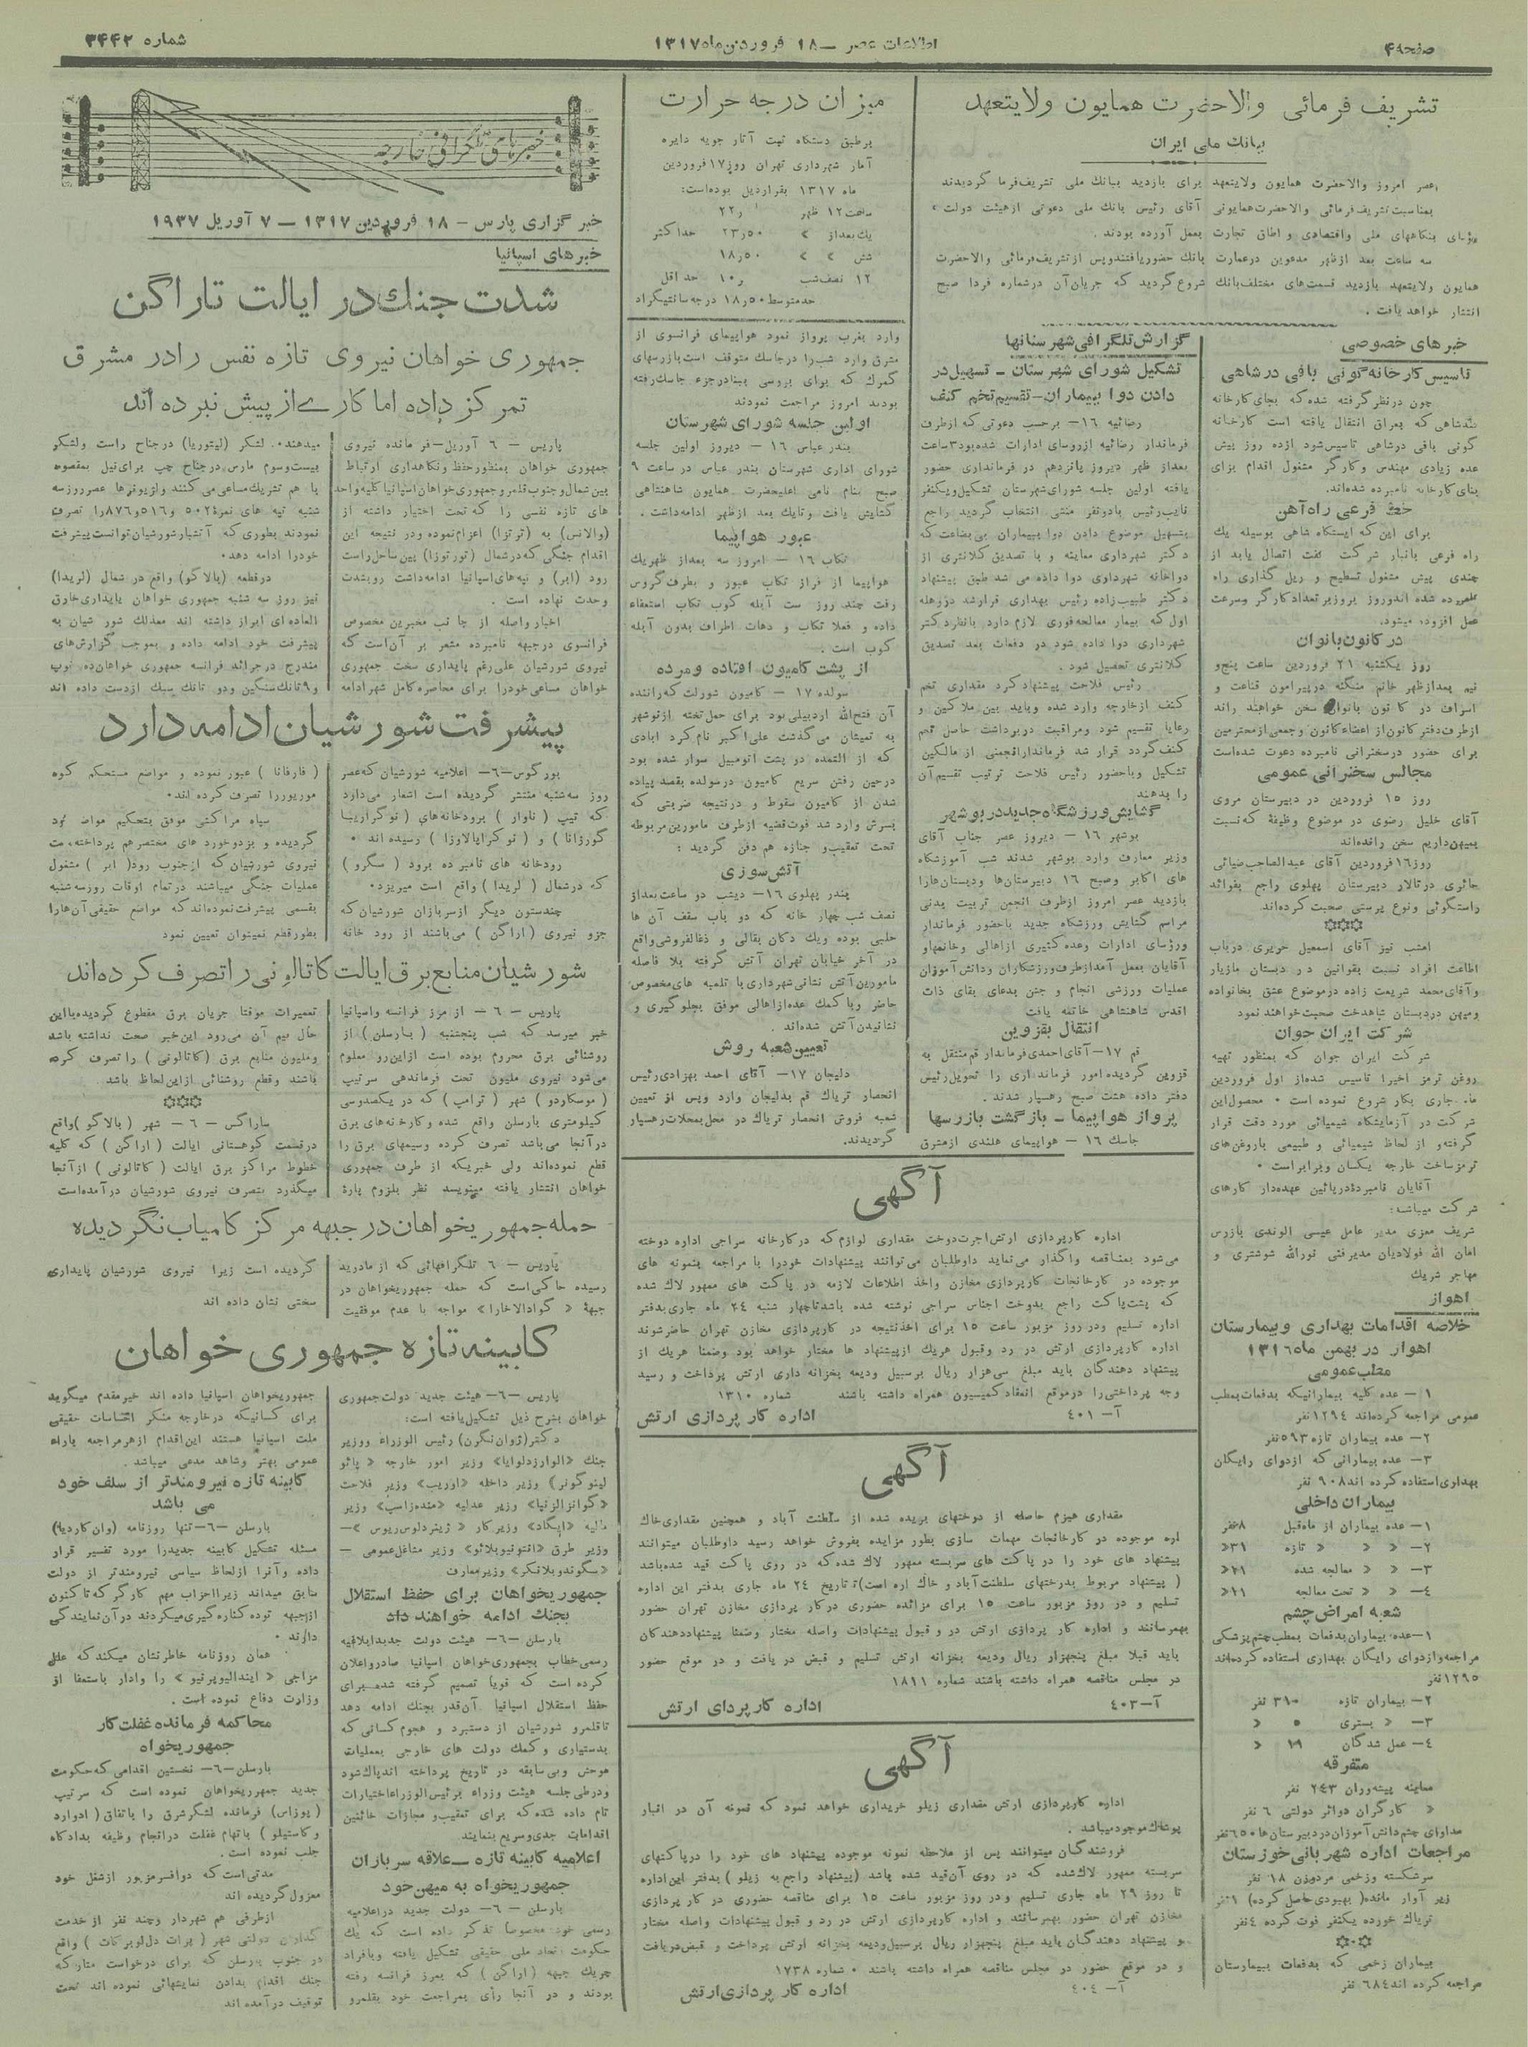 صفحه۴
اطلاعات عصر — ۱۸ فروردین ماه ۱۳۱۷
شماره ۳۴۴۲
تشریف فرمائی والاحضرت همایون ولایتعهد
ببانك ملی ایران
عصر امروز والاحضرت همایون ولایتعهد برای بازدید ببانك ملی تشریف فرما گردیدند
بمناسبت تشریف فرمائی والاحضرت همایونی آقای رئیس بانك ملی دعوتی از هیئت دولت ،
بنگاههای ملی واقتصادی و اطاق تجارت بعمل آورده بودند.
سه ساعت بعد ازظهر مدعوین درعمارت بانك حضور یافتند وپس از تشریف فرمائی والاحضرت
همایون ولایتعهد بازدید قسمت‌های مختلف بانك شروع گردید که جریان آن درشماره فردا صبح
انتشار خواهد یافت .
خبرهای خصوصی
تاسیس کارخانه گونی بافی درشاهی
چون درنظر گرفته شده که بجای کارخانه
قند شاهی که بعراق انتقال یافته است کارخانه
گونی بافی درشاهی تاسیس شود ازده روز پیش
عده زیادی مهندس وکارگر مشغول اقدام برای
بنای کارخانه نامبرده شده‌اند.
خط فرعی راه آهن
برای این که ایستگاه شاهی بوسیله یك
راه فرعی بانبار شرکت نفت اتصال یابد از
چندی پیش مشغول تسطیح و ریل گذاری راه
نامبرده شده اند وروز بروز بر تعداد کارگر وسرعت
عمل افزوده میشود.
در کانون بانوان
روز یکشنبه ۲۱ فروردین ساعت پنج و
نیم بعدازظهر خانم منگنه درپیرامون قناعت و
اسراف در کانون بانوان سخن خواهند راند
ازطرف دفتر کانون از اعضاء کانون وجمعی از محترمین
برای حضور درسخنرانی نامبرده دعوت شده‌است
مجالس سخنرانی عمومی
روز ۱۵ فروردین در دبیرستان مروی
آقای خلیل رضوی در موضوع وظیفهٔ که نسبت
بمیهن داریم سخن رانده‌اند
روز ۱۶ فروردین آقای عبدالصاحب ضیائی
حائری درتالار دبیرستان پهلوی راجع بفوائد
راستگوئی ونوع پرستی صحبت کرده‌اند
امشب نیز آقای اسمعیل حریری درباب
اطاعت افراد نسبت بقوانین در دبستان مازیار
وآقای محمد شریعت زاده درموضوع عشق بخانواده
ومیهن دردبستان شاهدخت صحبت خواهند نمود
شرکت ایران جوان
شرکت ایران جوان که بمنظور تهیه
روغن ترمز اخیرا تاسیس شده از اول فروردین
ماه جاری بکار شروع نموده است ۰ محصول این
شرکت در آزمایشگاه شیمیائی مورد دقت قرار
گرفته و از لحاظ شیمیائی و طبیعی باروغن‌های
ترمز ساخت خارجه یکسان وبرابراست ۰
آقایان نامبردهٔ درپائین عهده‌دار کارهای
شرکت میباشند:
شریف معزی مدیر عامل عیسی الوندی بازرس
امان الله فولادیان مدیر فنی نورالله شوشتری و
مهاجر شریك
اهواز
خلاصه اقدامات بهداری وبیمارستان
اهواز در بهمن ماه ۱۳۱۶
مطب عمومی
۱— عده کلیه بیمارانیکه بدفعات بمطب
عمومی مراجعه کرده‌اند ۱۲۹۴ نفر
۲— عده بیماران تازه ۵۹۳ نفر
۳— عده بیمارانی که ازدوای رایگان
بهداری استفاده کرده اند ۹۰۸ نفر
بیماران داخلی
۱— عده بیماران از ماه قبل ۸ نفر
۲— « « تازه ۳۱ «
۳— « « معالجه شده ۲۱ «
۴— « « تحت معالجه ۱۱ «
شعبه امراض چشم
۱— عده بیماران بدفعات بمطب چشم پزشکی
مراجعه وازدوای رایگان بهداری استفاده کرده‌اند
۱۲۹۵ نفر
۲— بیماران تازه ۳۱۰ نفر
۳— « بستری ۵ «
۴— عمل شدگان ۱۹ «
متفرقه
معاینه پیشه‌وران ۲۴۳ نفر
« کارگران دوائر دولتی ۶ نفر
مداوای چشم دانش آموزان دردبیرستان ها ۶۵۰ نفر
مراجعات اداره شهربانی خوزستان
سرشکسته وزخمی مردوزن ۱۸ نفر
زیر آوار مانده (بهبودی حاصل کرده) ۱ نفر
تریاك خورده یکنفر فوت کرده ۴ نفر
بیماران زخمی که بدفعات ببیمارستان
مراجعه کرده اند ۶۸۴ نفر
گزارش تلگرافی شهرستانها
تشکیل شورای شهرستان — تسهیل در
دادن دوا ببیماران — تقسیم تخم کنف
رضائیه ۱۶— برحسب دعوتی که ازطرف
فرماندار رضائیه ازروسای ادارات شده بود ۳ ساعت
بعداز ظهر دیروز پانزدهم در فرمانداری حضور
یافته اولین جلسه شورای شهرستان تشکیل ویکنفر
نایب رئیس بادونفر منشی انتخاب گردید راجع
بتسهیل موضوع دادن دوا ببیماران بی بضاعت که
دکتر شهرداری معاینه و با تصدیق کلانتری از
دواخانه شهرداری دوا داده می شد طبق پیشنهاد
دکتر طبیب زاده رئیس بهداری قرارشد دروهله
اول که بیمار معالجه فوری لازم دارد بانظر دکتر
شهرداری دوا داده شود در دفعات بعد تصدیق
کلانتری تحصیل شود .
رئیس فلاحت پیشنهاد کرد مقداری تخم
کنف ازخارجه وارد شده وباید بین ملاکین و
رعایا تقسیم شود ومراقبت دربرداشت حاصل تخم
کنف گردد قرار شد فرماندار انجمنی از مالکین
تشکیل وباحضور رئیس فلاحت ترتیب تقسیم آن
را بدهند
گشایش ورزشگاه جدید دربوشهر
بوشهر ۱۶ — دیروز عصر جناب آقای
وزیر معارف وارد بوشهر شدند شب آموزشگاه
های اکابر وصبح ۱۶ دبیرستان‌ها ودبستان‌هارا
بازدید عصر امروز ازطرف انجمن تربیت بدنی
مراسم گشایش ورزشگاه جدید باحضور فرماندار
ورؤسای ادارات وعده کثیری ازاهالی وخانمهاو
آقایان بعمل آمد ازطرف ورزشکاران ودانش آموزان
عملیات ورزشی انجام و جشن بدعای بقای ذات
اقدس شاهنشاهی خاتمه یافت
انتقال بقزوین
قم ۱۷— آقای احمدی فرماندار قم منتقل به
قزوین گردیده امور فرمانداری را تحویل رئیس
دفتر داده هشت صبح رهسپار شدند.
پرواز هواپیما — بازگشت بازرسها
جاسك ۱۶ — هواپیمای هلندی ازمشرق
میزان درجه حرارت
برطبق دستگاه ثبت آثار جویه دایره
آمار شهرداری تهران روز ۱۷ فروردین
ماه ۱۳۱۷ بقرار ذیل بوده‌است:
ساعت ۱۲ ظهر ۲۲٫
یك بعداز « ۲۳٫۵۰ حداکثر
شش « « ۱۸٫۵۰
۱۲ نصف شب ۱۰٫ حد اقل
حد متوسط ۱۸٫۵۰ درجه سانتیگراد
وارد بغرب پرواز نمود هواپیمای فرانسوی از
مشرق وارد شب را درجاسك متوقف است بازرسهای
گمرك که برای بررسی ببنادر جزء جاسك رفته
بودند امروز مراجعت نمودند
اولین جلسه شورای شهرستان
بندر عباس ۱۶ — دیروز اولین جلسه
شورای اداری شهرستان بندر عباس در ساعت ۹
صبح بنام نامی اعلیحضرت همایون شاهنشاهی
گشایش یافت وتایك بعد ازظهر ادامه داشت .
عبور هواپیما
تکاب ۱۶ — امروز سه بعداز ظهر یك
هواپیما از فراز تکاب عبور و بطرف گروس
رفت چند روز ست آبله کوب تکاب استعفاء
داده و فعلا تکاب و دهات اطراف بدون آبله
کوب است .
از پشت کامیون افتاده ومرده
سولده ۱۷ — کامیون شورلت که راننده
آن فتح‌الله اردبیلی بود برای حمل تخته ازنوشهر
به تمیشان می گذشت علی اکبر نام کرد آبادی
که از المتده در پشت اتومبیل سوار شده بود
درحین رفتن سریع کامیون درسولده بقصد پیاده
شدن از کامیون سقوط و درنتیجه ضربتی که
بسرش وارد شد فوت قضیه ازطرف مامورین مربوطه
تحت تعقیب و جنازه هم دفن گردید ؛
آتش سوزی
بندر پهلوی ۱۶— دیشب دو ساعت بعداز
نصف شب چهار خانه که دو باب سقف آن ها
حلبی بوده ویك دکان بقالی و ذغالفروشی واقع
در آخر خیابان تهران آتش گرفته بلا فاصله
مامورین آتش نشانی شهرداری با تلمبه های مخصوص
حاضر وباکمك عده ازاهالی موفق بجلوگیری و
نشانیدن آتش شده‌اند .
تعیین شعبه روش
دلیجان ۱۷— آقای احمد بهزادی رئیس
انحصار تریاك قم بدلیجان وارد وپس از تعیین
شعبه فروش انحصار تریاك در محل بمحلات رهسپار
گردیدند.
آگهی
اداره کارپردازی ارتش اجرت دوخت مقداری لوازم که درکارخانه سراجی اداره دوخته
می‌شود بمناقصه واگذار می‌نماید داوطلبان می‌توانند پیشنهادات خودرا با مراجعه بنمونه های
موجوده در کارخانجات کارپردازی مخازن واخذ اطلاعات لازمه در پاکت های ممهور لاك شده
که پشت پاکت راجع بدوخت اجناس سراجی نوشته شده باشد تا چهار شنبه ۲۴ ماه جاری بدفتر
اداره تسلیم ودر روز مزبور ساعت ۱۵ برای اخذ نتیجه در کارپردازی مخازن تهران حاضر شوند
اداره کارپردازی ارتش در رد وقبول هریك ازپیشنهاد ها مختار خواهد بود وضمنا هریك از
پیشنهاد دهندگان باید مبلغ سی‌هزار ریال برسبیل ودیعه بخزانه داری ارتش پرداخت و رسید
وجه پرداختی را درموقع انعقاد کمیسیون همراه داشته باشند شماره ۱۳۱۰
آ— ۴۰۱ اداره کار پردازی ارتش
آگهی
مقداری هیزم حاصله از درختهای بریده شده از سلطنت آباد و همچنین مقداری خاك
اره موجوده دو کارخانجات مهمات سازی بطور مزایده بفروش خواهد رسید داوطلبان میتوانند
پیشنهاد های خود را در پاکت های سربسته ممهور لاك شده که در روی پاکت قید شده باشد
( پیشنهاد مربوط بدرختهای سلطنت آباد و خاك اره است) تا تاریخ ۲۴ ماه جاری بدفتر این اداره
تسلیم و در روز مزبور ساعت ۱۵ برای مزائده حضوری درکار پردازی مخازن تهران حضور
بهمرسانند و اداره کار پردازی ارتش در رد و قبول پیشنهادات واصله مختار وضمنا پیشنهاد دهندگان
باید قبلا مبلغ پنجهزار ریال ودیعه بخزانه ارتش تسلیم و قبض در یافت و در موقع حضور
در مجلس مناقصه همراه داشته باشند شماره ۱۸۱۱
آ—۴۰۳ اداره کار پردای ارتش
آگهی
اداره کارپردازی ارتش مقداری زیلو خریداری خواهد نمود که نمونه آن در انبار
پوشاك موجود میباشد.
فروشندگان میتوانند پس از ملاحظه نمونه موجوده پیشنهاد های خود را درپاکتهای
سربسته ممهور لاك‌شده که در روی آن قید شده باشد (پیشنهاد راجع به زیلو) بدفتر این اداره
تا روز ۲۹ ماه جاری تسلیم ودر روز مزبور ساعت ۱۵ برای مناقصه حضوری در کار پردازی
مخازن تهران حضور بهمرسانند و اداره کارپردازی ارتش در رد و قبول پیشنهادات واصله مختار
و پیشنهاد دهندگان باید مبلغ پنجهزار ریال برسبیل ودیعه بخزانه ارتش پرداخت و قبض دریافت
و در موقع حضور در مجلس مناقصه همراه داشته باشند ۰ شماره ۱۷۳۸
آ— ۴۰۴ اداره کار پردازی ارتش
خبرهای تلگرافی خارجه
خبرگزاری پارس — ۱۸ فروردین ۱۳۱۷ — ۷ آوریل ۱۹۳۷
خبرهای اسپانیا
شدت جنك در ایالت تاراگن
جمهوری خواهان نیروی تازه نفس رادر مشرق
تمرکز داده اما کارے از پیش نبرده اند
پاریس — ۶ آوریل— فرمانده نیروی
جمهوری خواهان بمنظور حفظ ونگاهداری ارتباط
بین شمال وجنوب قلمرو جمهوری خواهان اسپانیا کلیه واحد
های تازه نفسی را که تحت اختیار داشته از
(والانس) به (ترتزا) اعزام نموده ودر نتیجه این
اقدام جنگی که درشمال (تورتوزا) بین ساحل راست
رود (ابر) و تپه‌های اسپانیا ادامه داشت رو بشدت
وحدت نهاده است .
اخبار واصله از جانب مخبرین مخصوص
فرانسوی درجبهه نامبرده مشعر بر آن است که
نیروی شورشیان علی رغم پایداری سخت جمهوری
خواهان مساعی خودرا برای محاصره کامل شهر ادامه
میدهند۰ لشکر (لیتوریا) درجناح راست ولشکر
بیست وسوم مارس درجناح چپ برای نیل بمقصود
با هم تشریك مساعی می کنند ولژیونرها عصر روز سه
شنبه تپه های نمرهٔ ۵۰۲ و ۵۱۶ و ۸۷۶ را تصرف
نمودند بطوری که آتشبار شورشیان توانست پیشرفت
خودرا ادامه دهد.
درقطعه (بالاگو) واقع در شمال (لریدا)
نیز روز سه شنبه جمهوری خواهان پایداری خارق
العاده‌ای ابراز داشته اند معذلك شور شیان به
پیشرفت خود ادامه داده و بموجب گزارش‌های
مندرج درجرائد فرانسه جمهوری خواهان ده توپ
و ۹ تانك سنگین و دو تانك سبك ازدست داده اند
پیشرفت شورشیان ادامه دارد
بورگوس —۶— اعلامیه شورشیان که عصر
روز سه‌شنبه منتشر گردیده است اشعار می‌دارد
که تیپ ( ناوار ) برودخانه‌های ( نوگراریبا
گورزانا ) و ( نوکراپالاوزا ) رسیده اند ۰
رودخانه های نامبر ده برود ( سگرو )
که درشمال ( لریدا ) واقع است میریزد۰
چندستون دیگر ازسربازان شورشیان که
جزو نیروی ( اراگن ) می‌باشند از رود خانه
( فارفانا ) عبور نموده و مواضع مستحکم کوه
موریوررا تصرف کرده اند۰
سپاه مراکشی موفق بتحکیم مواضع خود
گردیده و بزدوخورد های مختصر هم پرداخته‌است
نیروی شورشیان که ازجنوب رود( ابر ) مشغول
عملیات جنگی میباشند در تمام اوقات روز سه‌شنبه
بقسمی پیشرفت نموده‌اند که مواضع حقیقی آن‌هارا
بطور قطع نمیتوان تعیین نمود
شورشیان منابع برق ایالت کاتالونی را تصرف کرده‌اند
پاریس — ۶ — از مرز فرانسه واسپانیا
خبر میرسد که شب پنجشنبه (بارسلن) از
روشنائی برق محروم بوده است ازاین رو معلوم
می‌شود نیروی ملیون تحت فرماندهی سرتیپ
(موسکاردو) شهر ( ترامپ ) که در یکصدوسی
کیلومتری بارسلن واقع شده وکارخانه‌های برق
درآنجا می‌باشد تصرف کرده وسیمهای برق را
قطع نموده‌اند ولی خبریکه از طرف جمهوری
خواهان انتشار یافته مینویسد نظر بلزوم پارهٔ
تعمیرات موقتا جریان برق مقطوع گردیده‌بااین
حال بیم آن می‌رود این خبر صحت نداشته باشد
وملیون منابع برق (کاتالونی ) را تصرف کرده
باشند وقطع روشنائی از این لحاظ باشد
ساراگس — ۶ — شهر (بالاگو )واقع
درقسمت کوهستانی ایالت ( اراگن ) که کلیه
خطوط مراکز برق ایالت ( کاتالونی ) ازآنجا
میگذرد بتصرف نیروی شورشیان درآمده‌است
حمله جمهوریخواهان در جبهه مرکز کامیاب نگردیده
پاریس — ۶ تلگرافهائی که از مادرید
رسیده حاکی‌است که حمله جمهوریخواهان در
جبهه « گوادالاخارا» مواجه با عدم موفقیت
گردیده است زیرا نیروی شورشیان پایداری
سختی نشان داده اند
کابینه تازه جمهوری خواهان
پاریس —۶— هیئت جدید دولت جمهوری
خواهان بشرح ذیل تشکیل یافته است:
دکتر (ژوان نگرن) رئیس الوزراء ووزیر
جنك «الوارزدلوایا» وزیر امور خارجه « پائو
لینوگونر) وزیر داخله «اوریب» وزیر فلاحت
«گوانزالزنیا» وزیر عدلیه «منده‌زاسپ» وزیر
مالیه «ایگاد» وزیر کار « ژینردلوس‌ریوس »—
وزیر طرق «انتونیوبلائو» وزیر مشاغل عمومی —
«سگوندوبلانکر» وزیر معارف
جمهوریخواهان برای حفظ استقلال
بجنك ادامه خواهند داد
بارسلن —۶— هیئت دولت جدید ابلاغیه
رسمی خطاب بجمهوری‌خواهان اسپانیا صادر واعلان
کرده است که قویا تصمیم گرفته شده برای
حفظ استقلال اسپانیا آن‌قدر بجنك ادامه دهد
تاقلمرو شورشیان از دستبرد و هجوم کسانی که
بدستیاری و کمك دولت های خارجی بعملیات
موحش وبی سابقه در تاریخ پرداخته اند پاك شود
ودرطی جلسه هیئت وزراء برئیس الوزراء اختیارات
تام داده شده که برای تعقیب و مجازات خائنین
اقدامات جدی وسریع بنمایند
اعلامیه کابینه تازه — علاقه سربازان
جمهوریخواه به میهن خود
بارسلن — ۶— دولت جدید در اعلامیه
رسمی خود مخصوصا تذکر داده است که یك
حکومت اتحاد ملی حقیقی تشکیل یافته وبافراد
چریك جبهه (اراگن ) که بمرز فرانسه رفته
بودند و در آنجا رأی بمراجعت خود بقلمرو
جمهوریخواهان اسپانیا داده اند خیر مقدم میگوید
برای کسانیکه درخارجه منکر احساسات حقیقی
ملت اسپانیا هستند این اقدام ازهر مراجعه باراء
عمومی بهتر وشاهد مدعی میباشد.
کابینه تازه نیرومندتر از سلف خود
می باشد
بارسلن —۶— تنها روزنامه (وان کاردیا)
مسئله تشکیل کابینه جدیدرا مورد تفسیر قرار
داده وآنرا ازلحاظ سیاسی نیرومندتر از دولت
سابق میداند زیرا احزاب مهم کارگر که تاکنون
ازجبهه توده کناره گیری میکردند در آن نمایندگی
دارند ۰
همان روزنامه خاطرنشان میکند که علل
مزاجی « ایندالیوپرتیو » را وادار باستعفا از
وزارت دفاع نموده است .
محاکمه فرمانده غفلت کار
جمهوریخواه
بارسلن —۶— نخستین اقدامی که حکومت
جدید جمهوریخواهان نموده است که سرتیپ
(پوزاس) فرمانده لشگر شرق را باتفاق ( ادوارد
وکاستیلو ) باتهام غفلت درانجام وظیفه بدادگاه
جلب نموده است.
مدتی است که دوافسر مزبور ازشغل خود
معزول گردیده اند
ازطرفی هم شهردار وچند نفر از خدمت
گذاران دولتی شهر ( پرات دل‌لوبرکات ) واقع
در جنوب بارسلن که برای درخواست متارکه
جنك اقدام بدادن نمایشهائی نموده اند تحت
توقیف درآمده اند